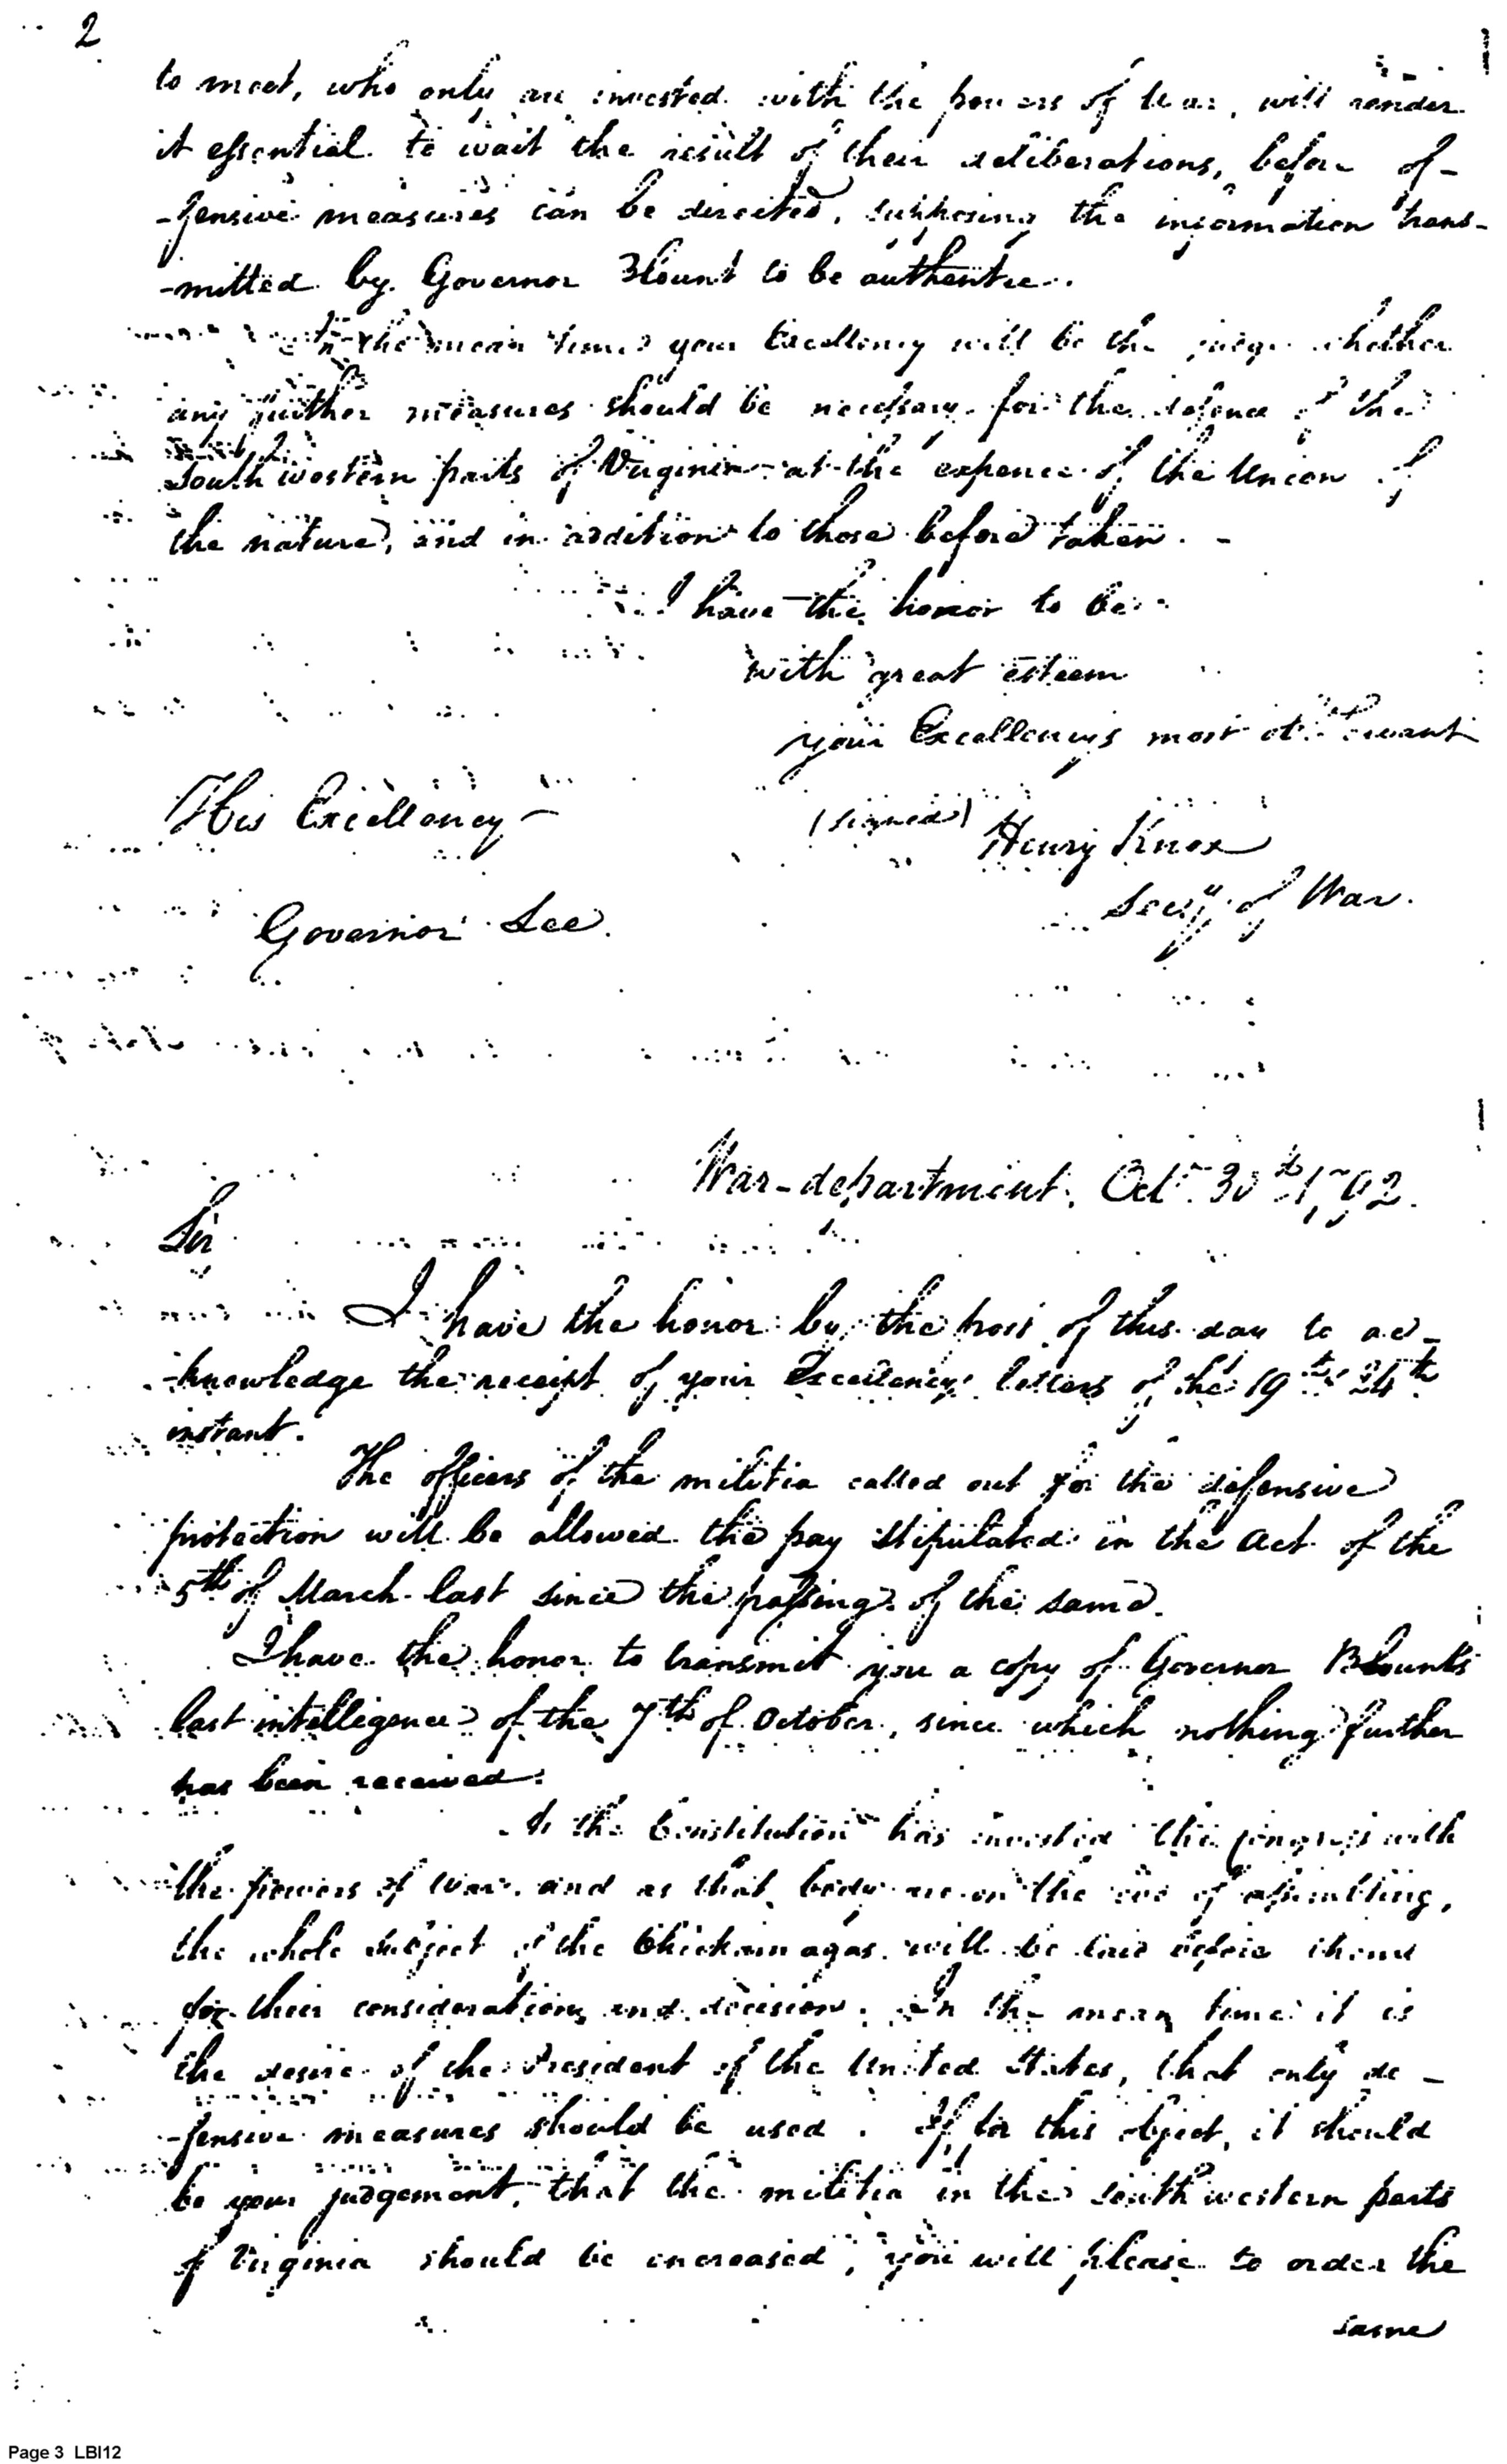 2
to meet, who only are invested with the powers of War, will render
it essential to wait the result of their deliberations, before of-
-fensive measures can be directed, supposing the information trans-
-mitted by Governor Blount to be authentic.
In the mean time your Excellency will be the judge whether
any further measures should be necessary for the defence of the
South western parts of Virginia at the expence of the Union of
the nature, and in addition to those before taken. -
I have the honor to be
with great esteem
your Excellencys most ob. Servant
(signed) Henry Knox
Secy of War.
His Excellency
Governor Lee.
War-department, Octr. 30th 1792.
Sir
I have the honor by the post of this day to ac-
-knowledge the receipt of your Excellency's letters of the 19th 24th
instant.
The officers of the militia called out for the defensive
protection will be allowed the pay stipulated in the Act of the
5th of March last since the passing of the same.
I have the honor to transmit you a copy of Governor Blounts
last intelligence of the 7th of October, since which nothing further
has been received.
As the Constitution has invested the Congress with
the powers of War, and as that body are on the eve of assembling,
the whole subject of the Chickamagas will be laid before them
for their consideration, and decision. In the mean time it is
the desire of the President of the United States, that only de-
-fensive measures should be used. If for this object, it should
be your judgement, that the militia in the south western parts
of Virginia should be increased, you will please to order the
same
Page 3 LBI12